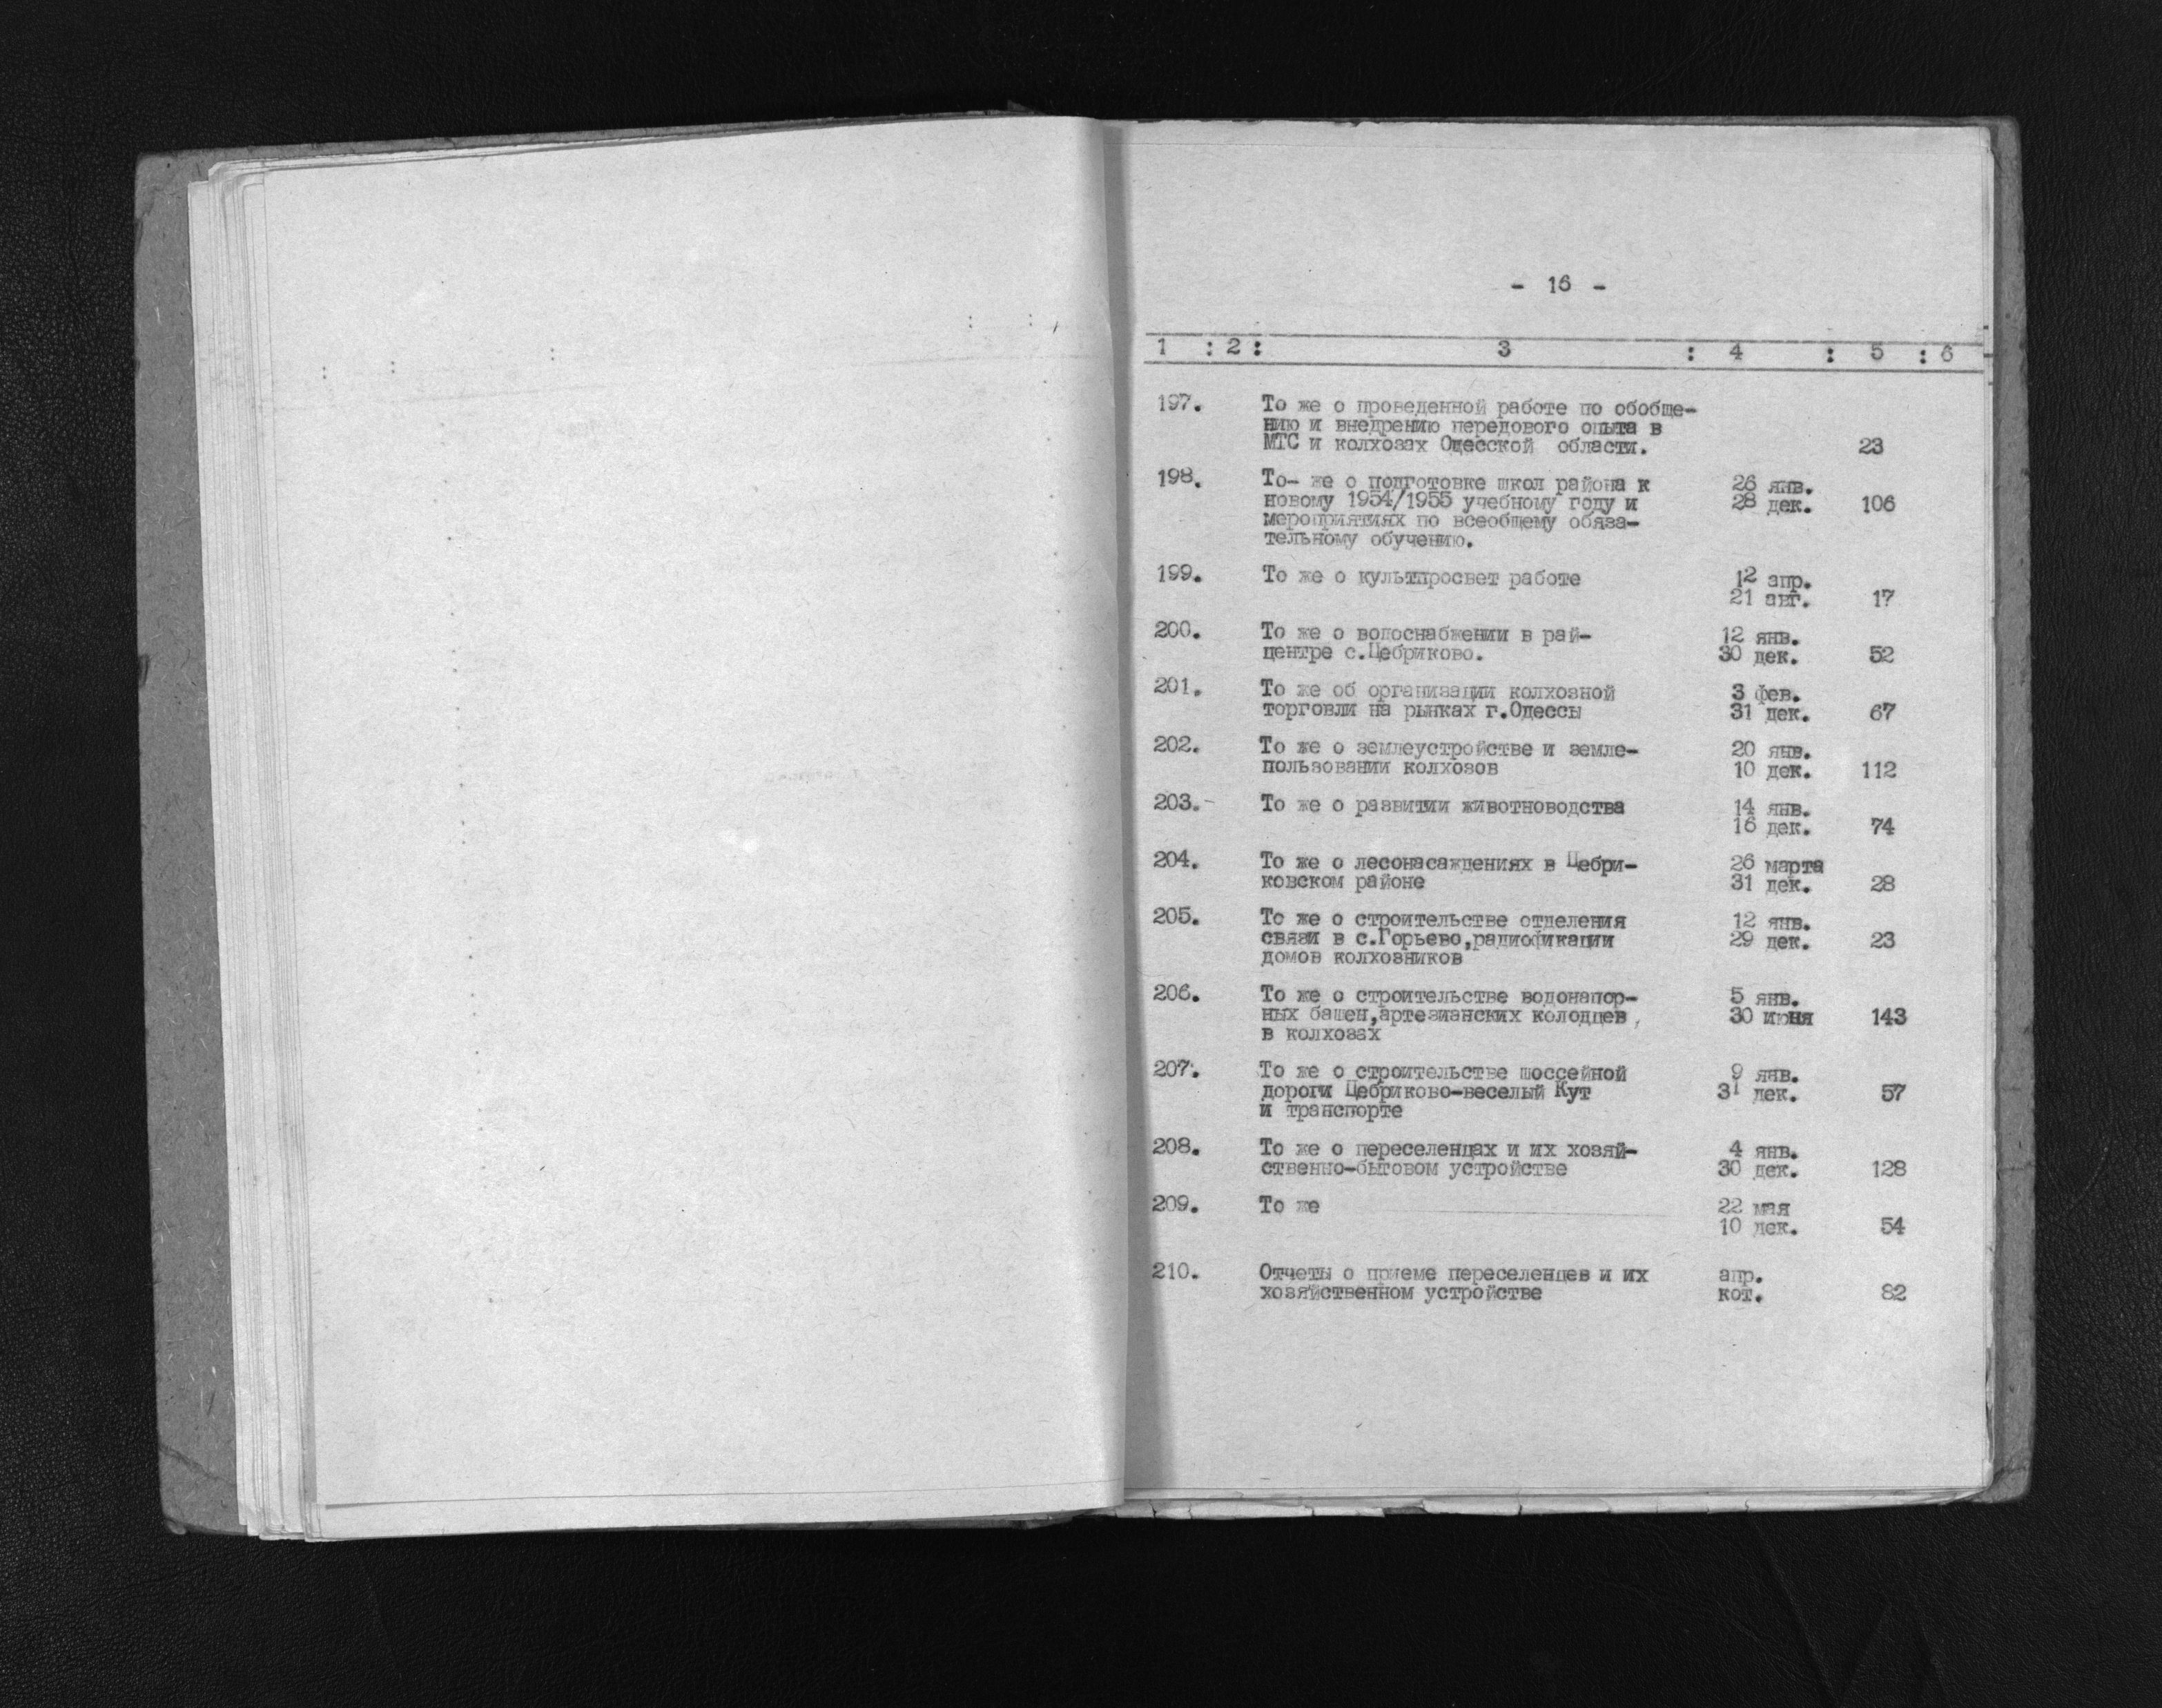 - 16 -
1 : 2 : 3 : 4 : 5 : 6
197. То же о проведенной работе по обобще-
нию и внедрению передового опыта в
МТС и колхозах Одесской области. 23
198. То- же о подготовке школ района к 26 янв.
новому 1954/1955 учебному году и 28 дек. 106
мероприятиях по всеобщему обяза-
тельному обучению.
199. То же о культпросвет работе 12 апр.
21 авг. 17
200. То же о водоснабжении в рай- 12 янв.
центре с.Цебриково. 30 дек. 52
201. То же об организации колхозной 3 фев.
торговли на рынках г.Одессы 31 дек. 67
202. То же о землеустройстве и земле- 20 янв.
пользовании колхозов 10 дек. 112
203.- То же о развитии животноводства 14 янв.
16 дек. 74
204. То же о лесонасаждениях в Цебри- 26 марта
ковском районе 31 дек. 28
205. То же о строительстве отделения 12 янв.
связи в с.Горьево,радиофикации 29 дек. 23
домов колхозников
206. То же о строительстве водонапор- 5 янв.
ных башен,артезианских колодцев, 30 июня 143
в колхозах
207. То же о строительстве шоссейной 9 янв.
дороги Цебриково-веселый Кут 31 дек. 57
и транспорте
208. То же о переселенцах и их хозяй- 4 янв.
ственно-бытовом устройстве 30 дек. 128
209. То же 22 мая
10 дек. 54
210. Отчеты о приеме переселенцев и их апр.
хозяйственном устройстве кот. 82